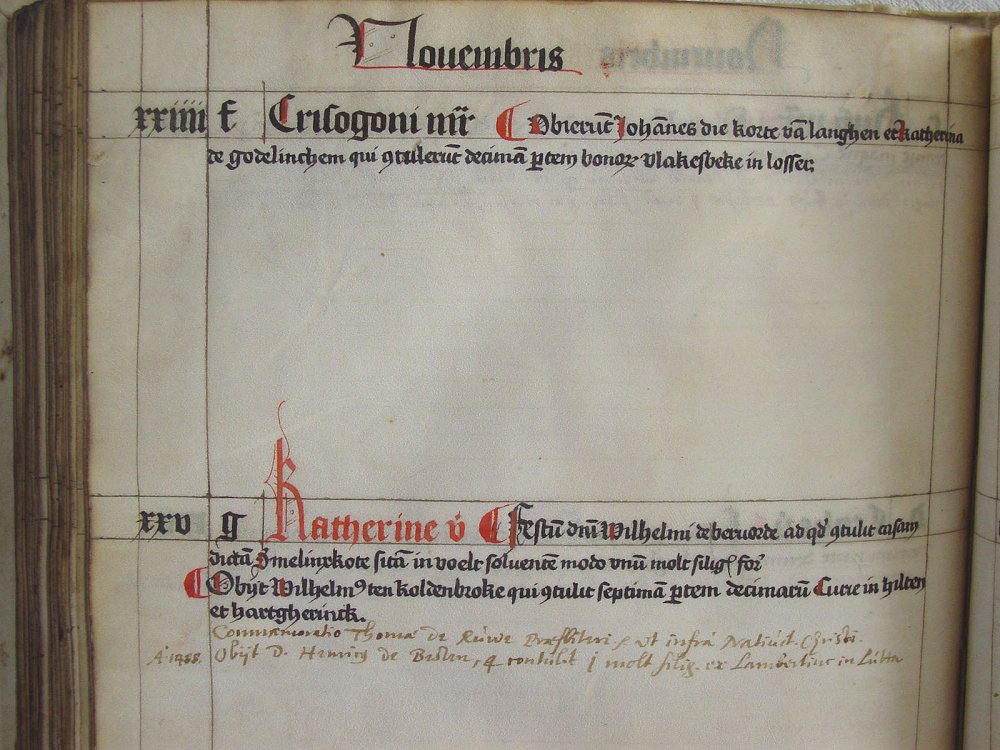 Nouembris
xxiiii f Crisogoni mr̄ Obierūt Johānes die korte vā langhen et katherina
de godelinchem qui ꝯtulerūt decimā ꝑtem bonoꝝ vlakesbeke in losser
xxv g Katherine v̄ Festū dnī Wilhelmi de beruorde ad qd̄ ꝯtulit casam
dictā Smelinxkote sitā in voelt soluentē modo vnū molt silig
Obijt Wilhelmꝰ ten koldenbroke qui ꝯtulit septimā ꝑtem decimarū Curie in hilten
et hartgherinck.
Commemoratio Thomae de Rüwe Presbiteri ut infra Natiuit. Christi.
Aº 1488. Obijt D. Henrics de , q contulit j molt silig. ex Lambertinc in Lutta